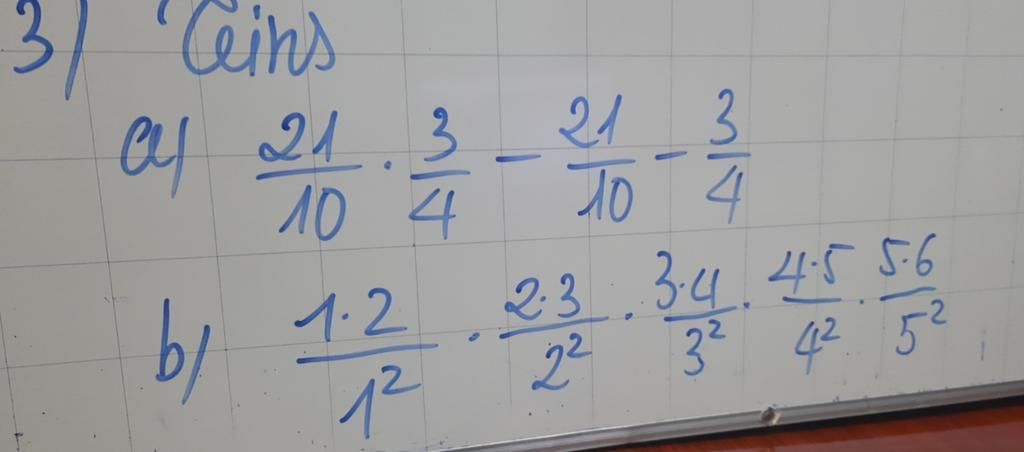 3) Tính
a) 21/10 · 3/4 − 21/10 − 3/4
b) 1·2/1² · 2·3/2² · 3·4/3² · 4·5/4² · 5·6/5²